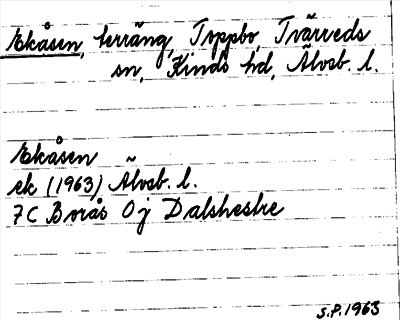 Ekåsen, terräng, Toppbo, Tvärreds
sn, Kinds hd, Älvsb. l.
Ekåsen
ek (1963) Älvsb. l.
7C Borås 0j Dalshestre
S.P. 1963